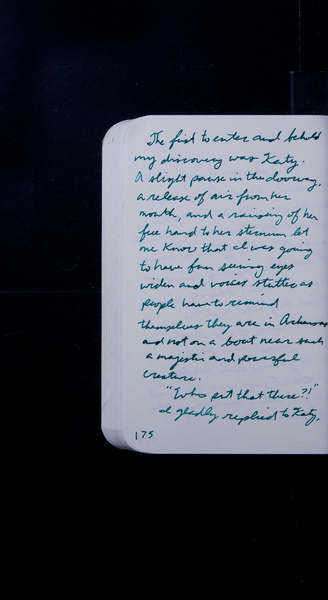 The first to enter and behold
my discovery was Katy.
A slight pause in the doorway,
a release of air from her
mouth, and a raising of her
free hand to her sternum let
me know that I was going
to have fun seeing eyes
widen and voices stutter as
people have to remind
themselves they are in Arkansas
and not on a boat near such
a majestic and powerful
creature.
"Who put that there?!"
I gladly replied to Katy,
175